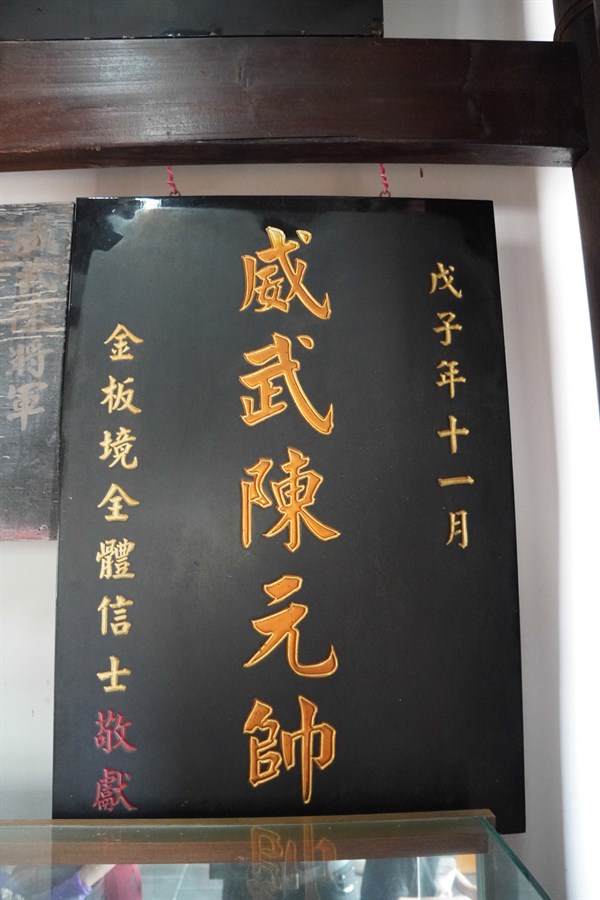 戊子年十一月
威武陳元帥
金板境全體信士敬獻
將軍